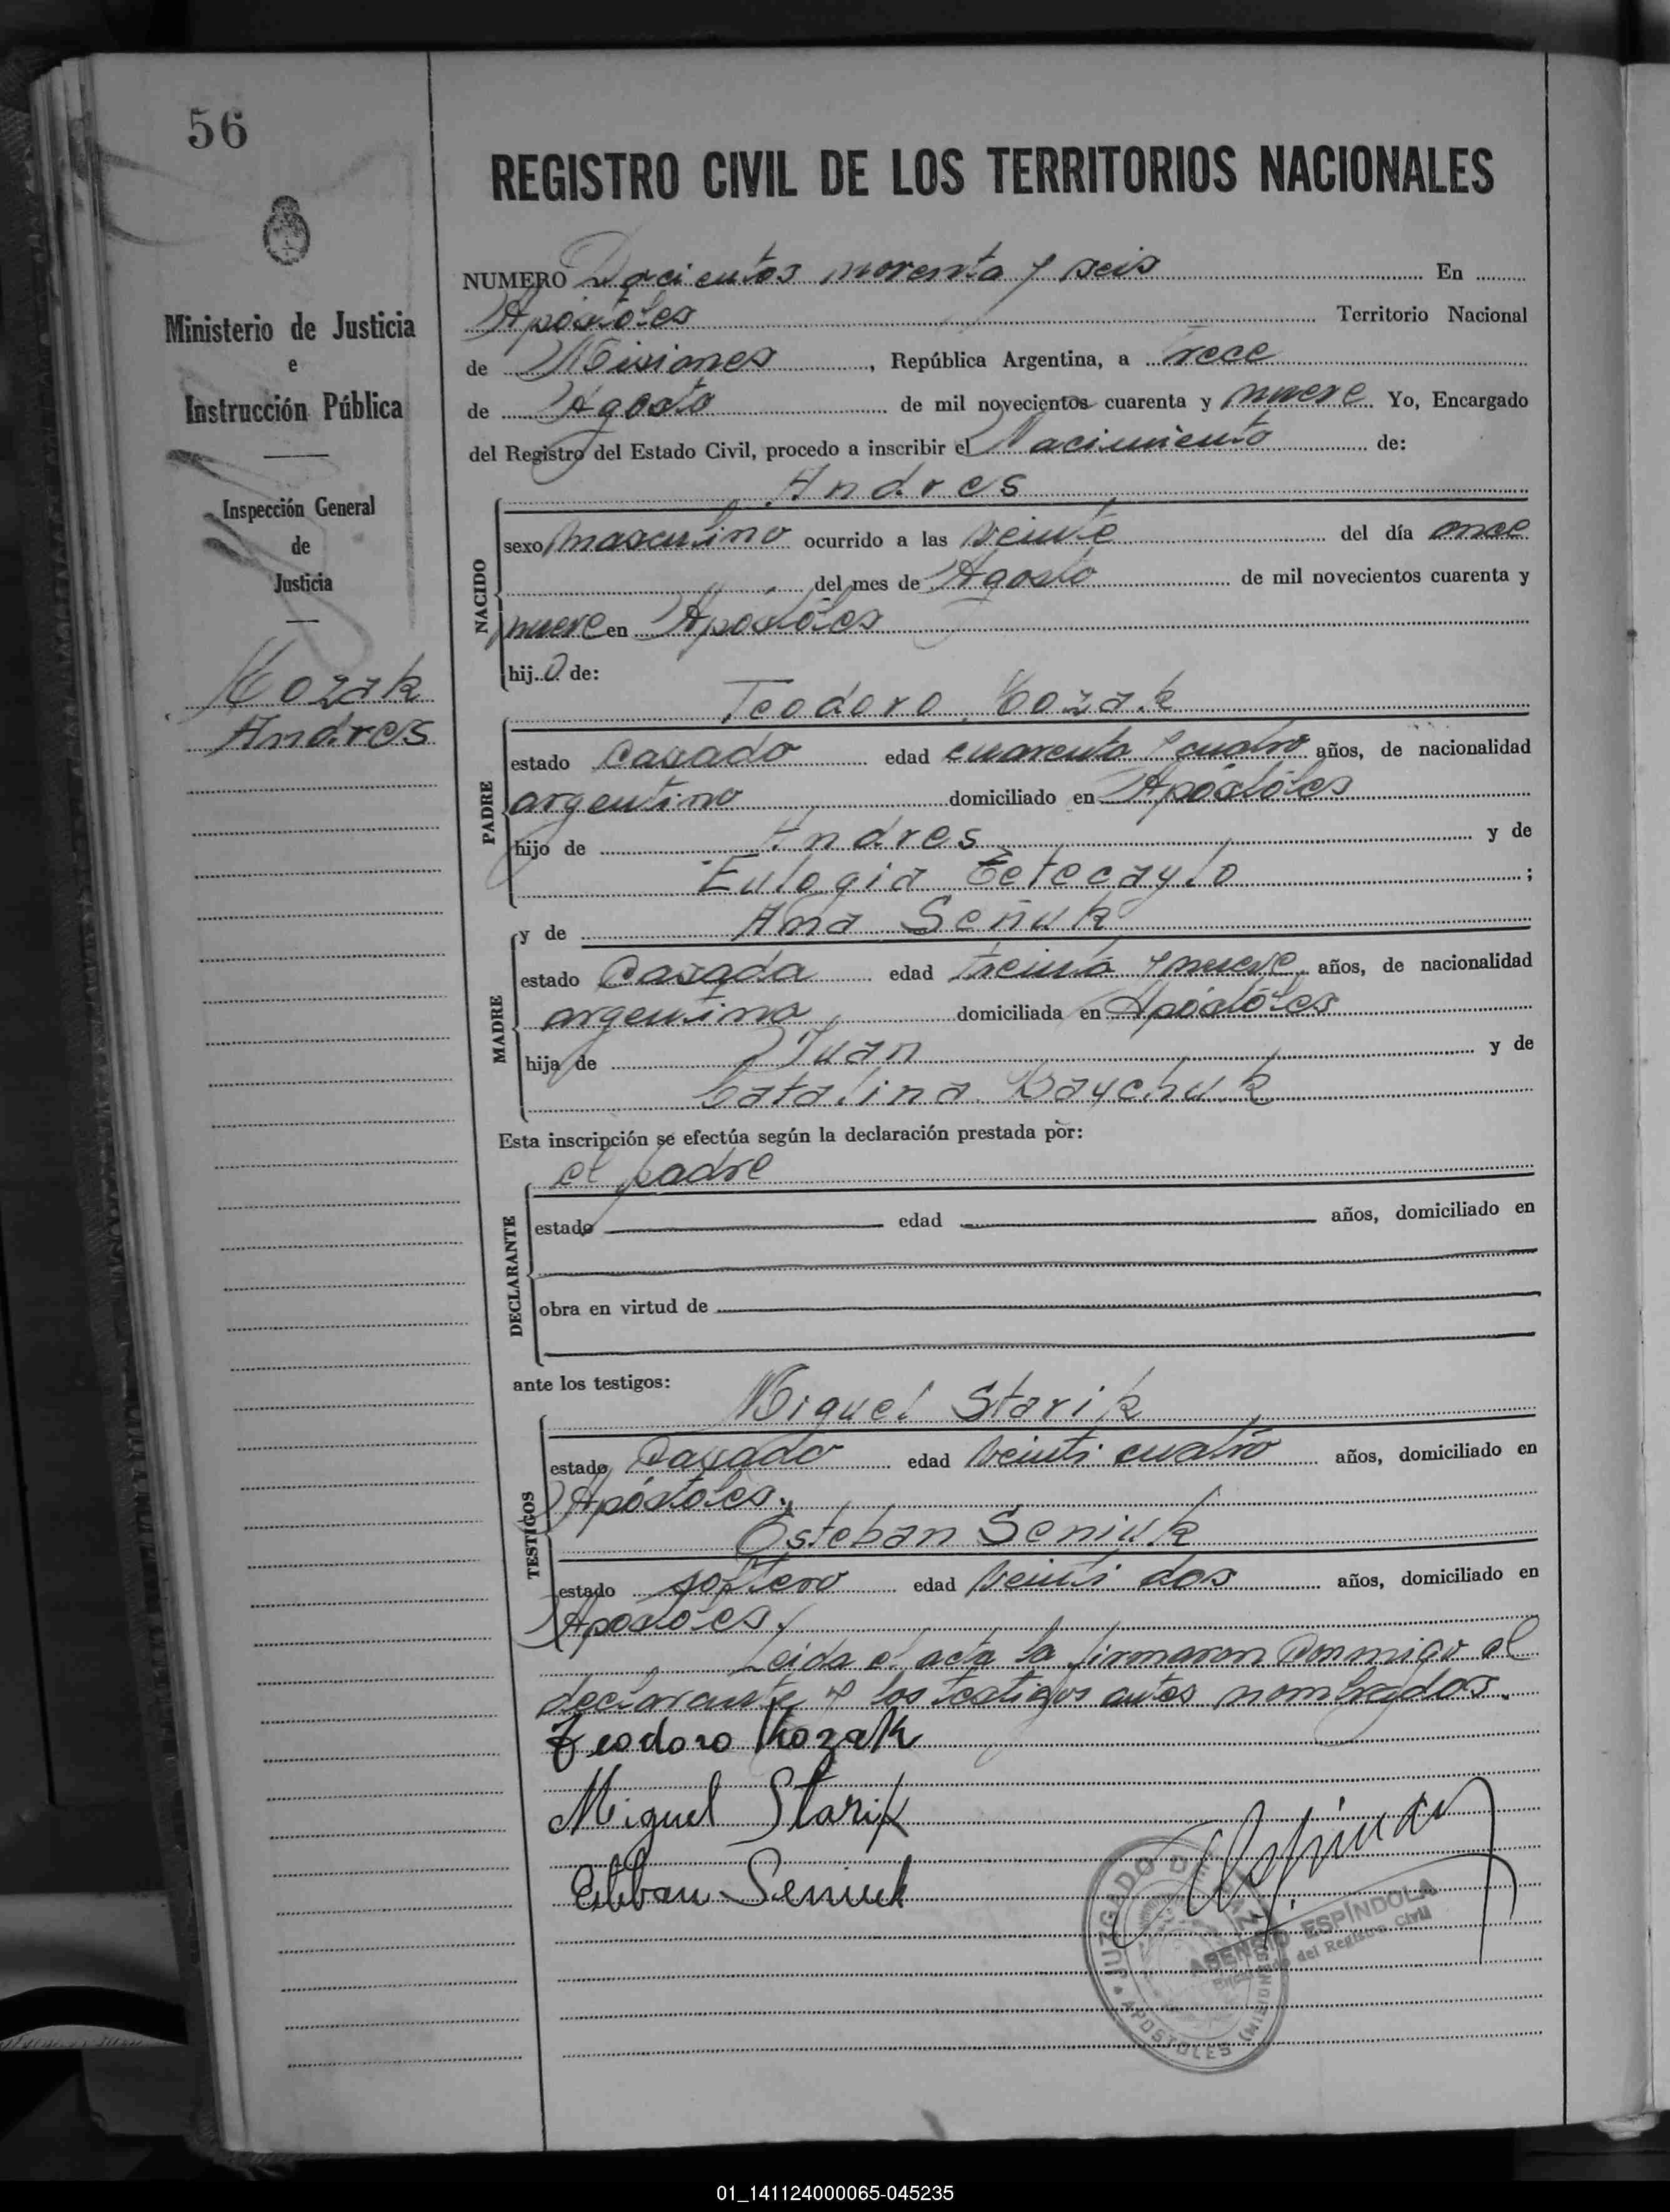 56
REGISTRO CIVIL DE LOS TERRITORIOS NACIONALES
Ministerio de Justicia
e
Instrucción Pública
Inspección General
de
Justicia
Kozak
Andres
NUMERO Docientos noventa y seis En
Apóstoles Territorio Nacional
de Misiones, República Argentina, a trece
de Agosto de mil novecientos cuarenta y nueve Yo, Encargado
del Registro del Estado Civil, procedo a inscribir el Nacimiento de:
Andres
NACIDO
sexo masculino ocurrido a las veinte del día once
del mes de Agosto de mil novecientos cuarenta y
nueve en Apóstoles
hijo de:
Teodoro Kozak
PADRE
estado casado edad cuarenta y cuatro años, de nacionalidad
argentino domiciliado en Apóstoles
hijo de Andres y de
Eulogia ;
y de Ana Señuk
MADRE
estado casada edad treinta y nueve años, de nacionalidad
argentina domiciliada en Apóstoles
hija de Juan y de
Catalina Baychuk
Esta inscripción se efectúa según la declaración prestada por:
el padre
DECLARANTE
estado edad años, domiciliado en
obra en virtud de
ante los testigos:
Miguel Starik
TESTIGOS
estado casado edad veinti cuatro años, domiciliado en
Apóstoles.,
Esteban Seniuk
estado soltero edad veinti dos años, domiciliado en
Apóstoles.
Leida el acta la firmaron conmigo el
declarante y los testigos antes nombrados.
Teodoro Kozak
Miguel Starik
Esteban Seniuk
JUZGADO DE PAZ
APOSTOLES (MISIONES)
ASENSIO ESPÍNDOLA
Encargado del Registro Civil
01_141124000065-045235